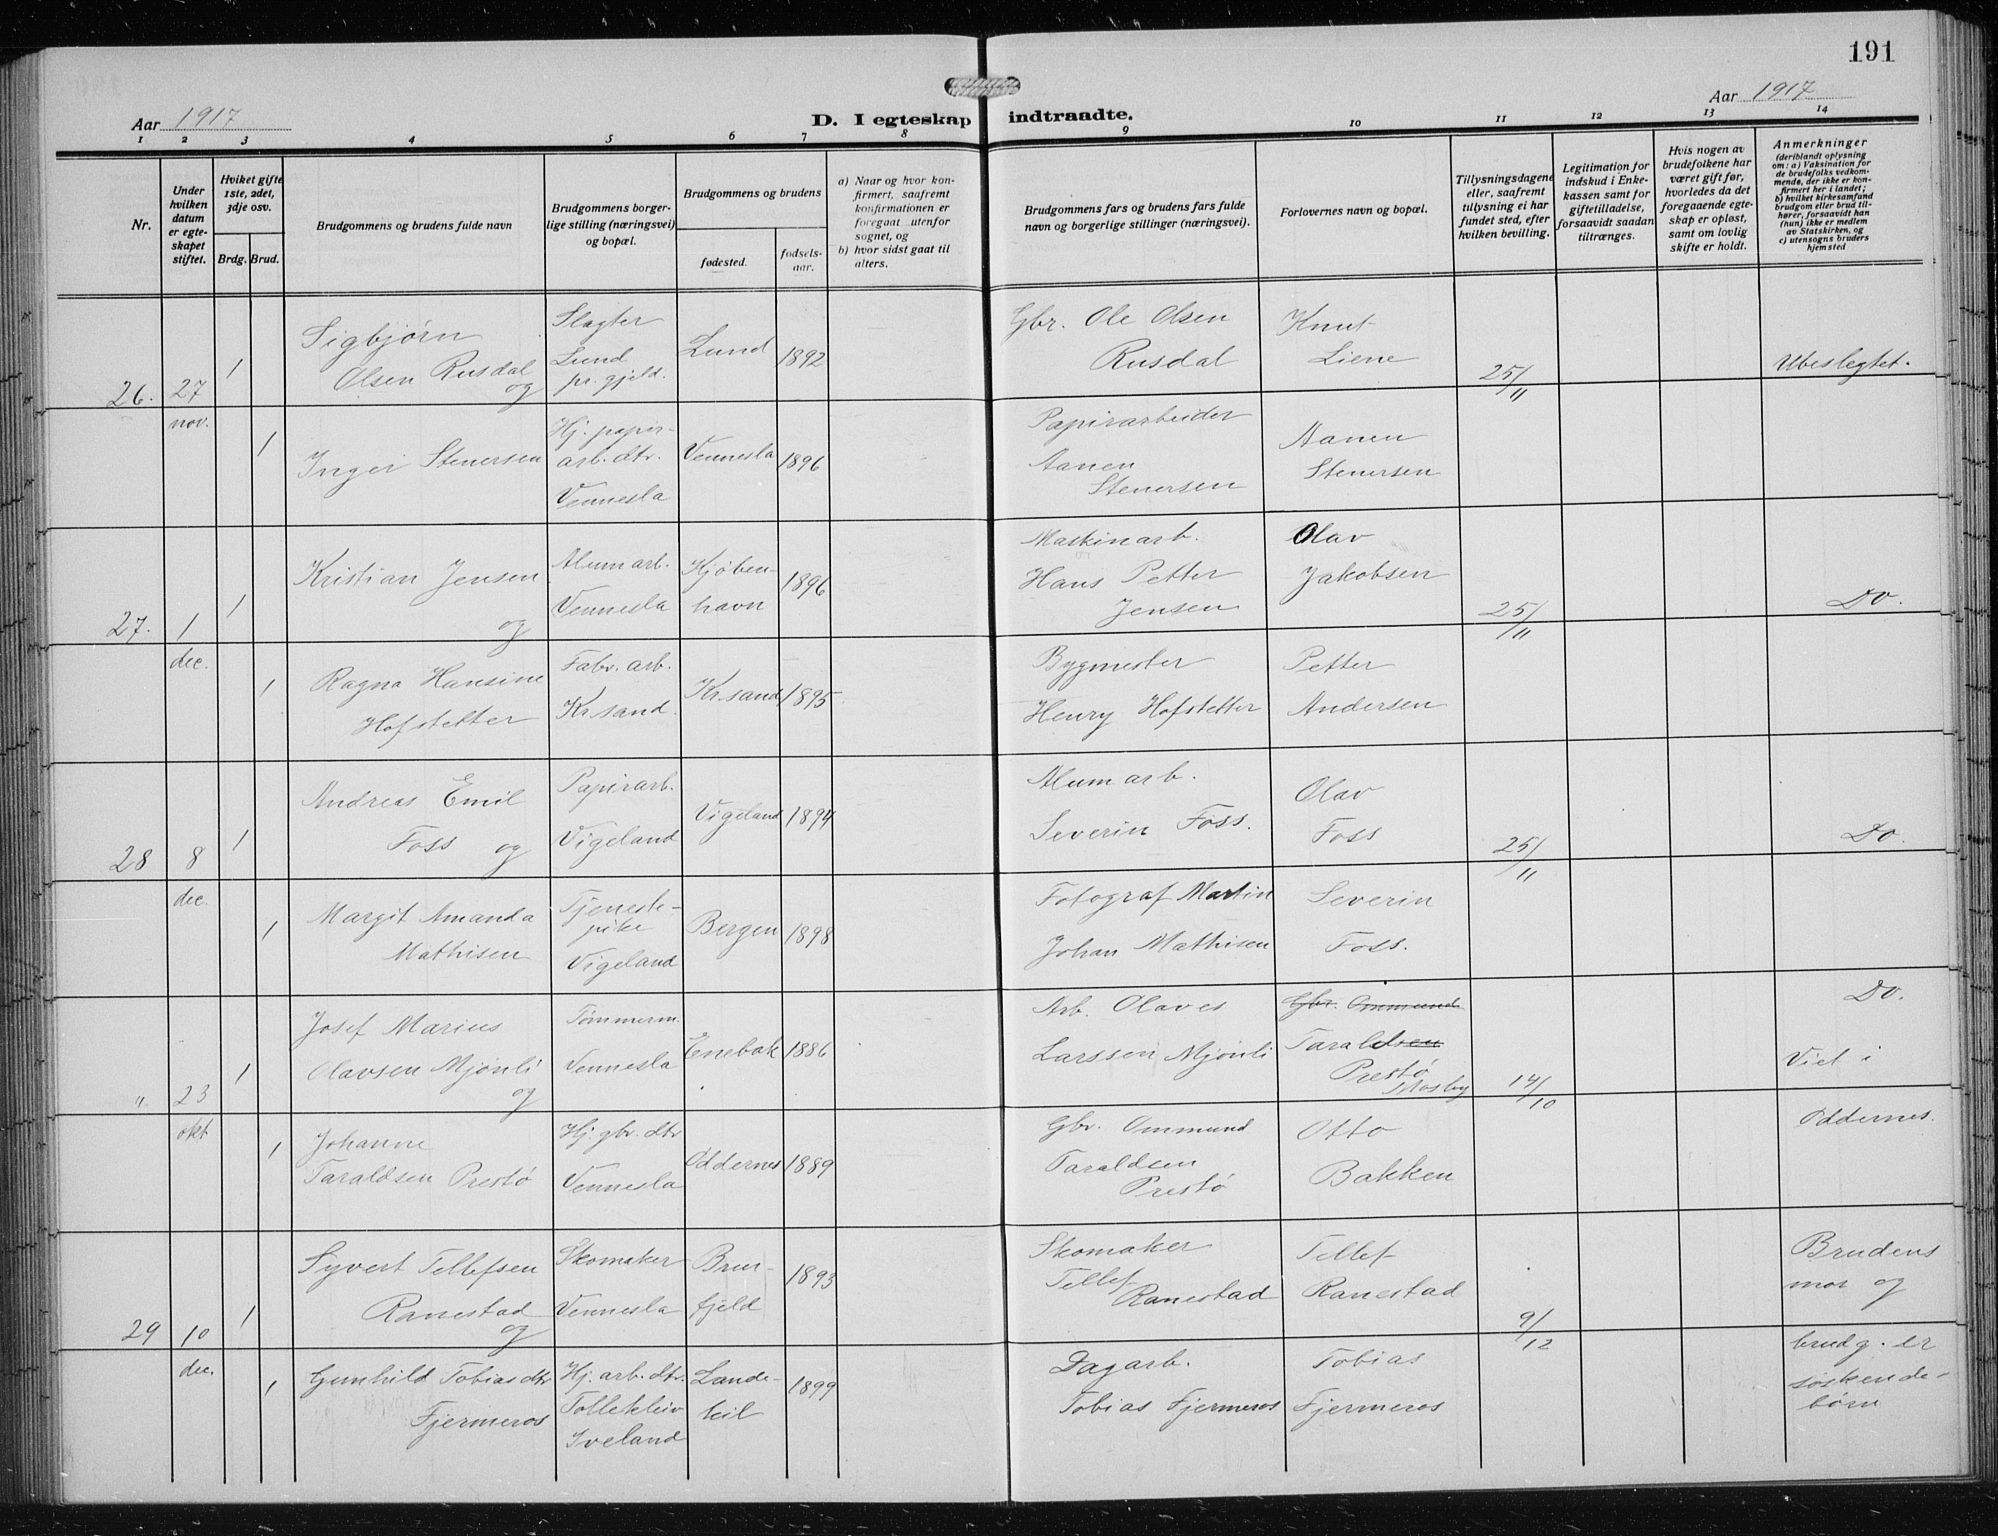 191
Aar 1917
D. I egteskap indtraadte.
Aar 1917
1 2 3 4 5 6 7 8 9 10 11 12 13 14
Nr.
Under hvilken datum er egteskapet stiftet.
Hviket gifte 1ste, 2det, 3dje osv.
Brdg. Brud.
Brudgommens og brudens fulde navn
Brudgommens borgerlige stilling (næringsvei) og bopæl.
Brudgommens og brudens
fødested.
fødselsaar.
a) Naar og hvor konfirmert, saafremt konfirmationen er foregaat utenfor sognet, og
b) hvor sidst gaat til alters.
Brudgommens fars og brudens fars fulde navn og borgerlige stillinger (næringsvei).
Forlovernes navn og bopæl.
Tillysningsdagene eller, saafremt tillysning ei har fundet sted, efter hvilken bevilling.
Legitimation for indskud i Enkekassen samt for giftetilladelse, forsaavidt saadan tiltrænges.
Hvis nogen av brudefolkene har været gift før, hvorledes da det foregaaende egteskap er opløst, samt om lovlig skifte er holdt.
Anmerkninger
(deriblandt oplysning om: a) Vaksination for de brudefolks vedkommende, der ikke er konfirmert her i landet; b) hvilket kirkesamfund brudgom eller brud tilhører, forsaavidt han (hun) ikke er medlem av Statskirken, og c) utensogns bruders hjemsted
26. 27 nov.
1
Sigbjørn
Olsen Rusdal
og
Slagter
Lund
pr. gjeld.
Lund
1892
Gbr. Ole Olsen
Rusdal
Knut
Liene
25/11
Ubeslegtet.
1
Inger Stenersen
Hj. papir-
arb. dtr.
Vennesla
Vennesla
1896
Papirarbeider
Aanen
Stenersen
Aanen
Stenersen
27. 1 dec.
1
Kristian Jensen
og
Alumarb.
Vennesla
Kjøben-
havn
1896
Maskinarb.
Hans Petter
Jensen
Olav
Jakobsen
25/11
Do.
1
Ragna Hansine
Hofstetter
Fabr. arb.
Kr.sand.
Kr.sand
1895
Bygmester
Henry Hofstetter
Petter
Andersen
28 8 dec.
1
Andreas Emil
Foss og
Papirarb.
Vigeland
Vigeland
1894
Alumarb.
Severin Foss.
Olav
Foss
25/11
Do.
1
Margit Amanda
Mathisen
Tjeneste-
pike
Vigeland
Bergen
1898
Fotograf Martin
Johan Mathisen
Severin
Foss.
" 23 okt
1
Josef Marius
Olavsen Mjønli
og
Tømmerm.
Vennesla
Enebak
1886
Arb. Olaves
Larssen Mjønli
Gbr. Ommund
Taraldsen
Prestø
Mosby
14/10
Do.
Viet i
Oddernes.
1
Johanne
Taraldsen Prestø
Hj. gbr. dtr
Vennesla
Oddernes
1889
Gbr. Ommund
Taraldsen
Prestø
Otto
Bakken
29 10 dec.
1
Syvert Tellefsen
Ranestad
og
Skomaker
Vennesla
1893
Skomaker
Tellef
Ranestad
Tellef
Ranestad
9/12
Brudens
mor og
brudg. er
søskende-
børn
1
Gunhild Tobiasdtr
Fjermeros
Hj. arb. dtr.
Tollekleiv
Iveland
1899
Dagarb.
Tobias Fjermeros
Tobias
Fjermeros